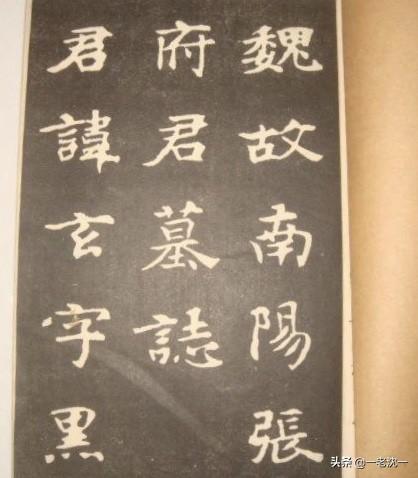 魏故南陽張
府君墓誌
君諱玄字黑
头条 @一老沈一